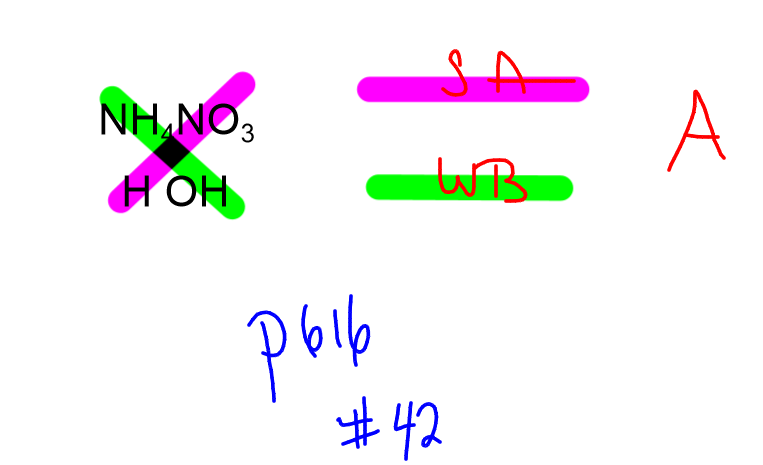 NH₄NO₃
H OH
SA
WB
A
p616
#42